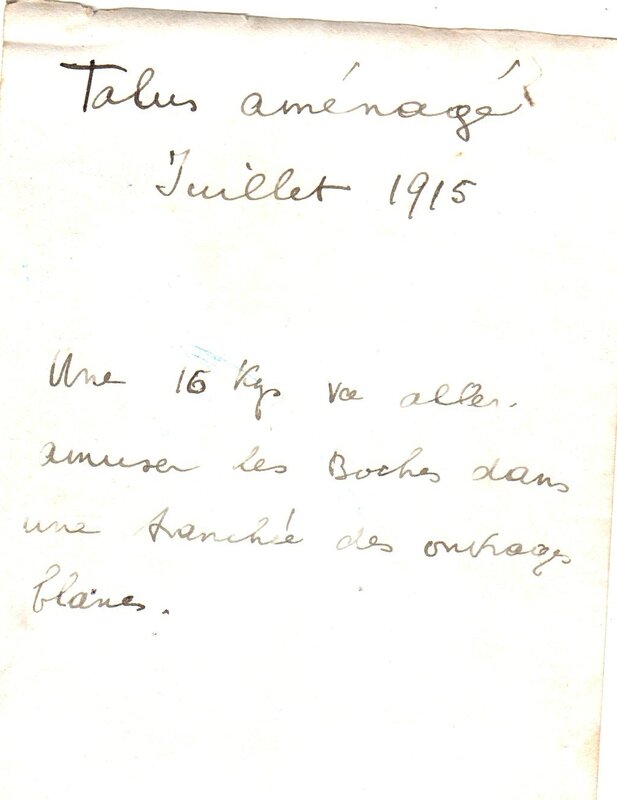 Talus aménagé
Juillet 1915
Une 16 Kgs va aller
amuser les Boches dans
une tranchée des ouvrages
blancs.